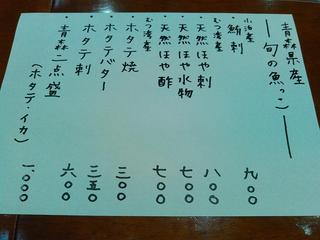 青森県産
― 旬の魚っこ ―
小泊産
・鮪刺 九〇〇
・天然ほや刺 八〇〇
・天然ほや水物 七〇〇
・天然ほや酢 七〇〇
むつ湾産
・ホタテ焼
・ホタテバター 三〇〇
・ホタテ刺 三五〇
青森二点盛 六〇〇
(ホタテ・イカ) 一、〇〇〇